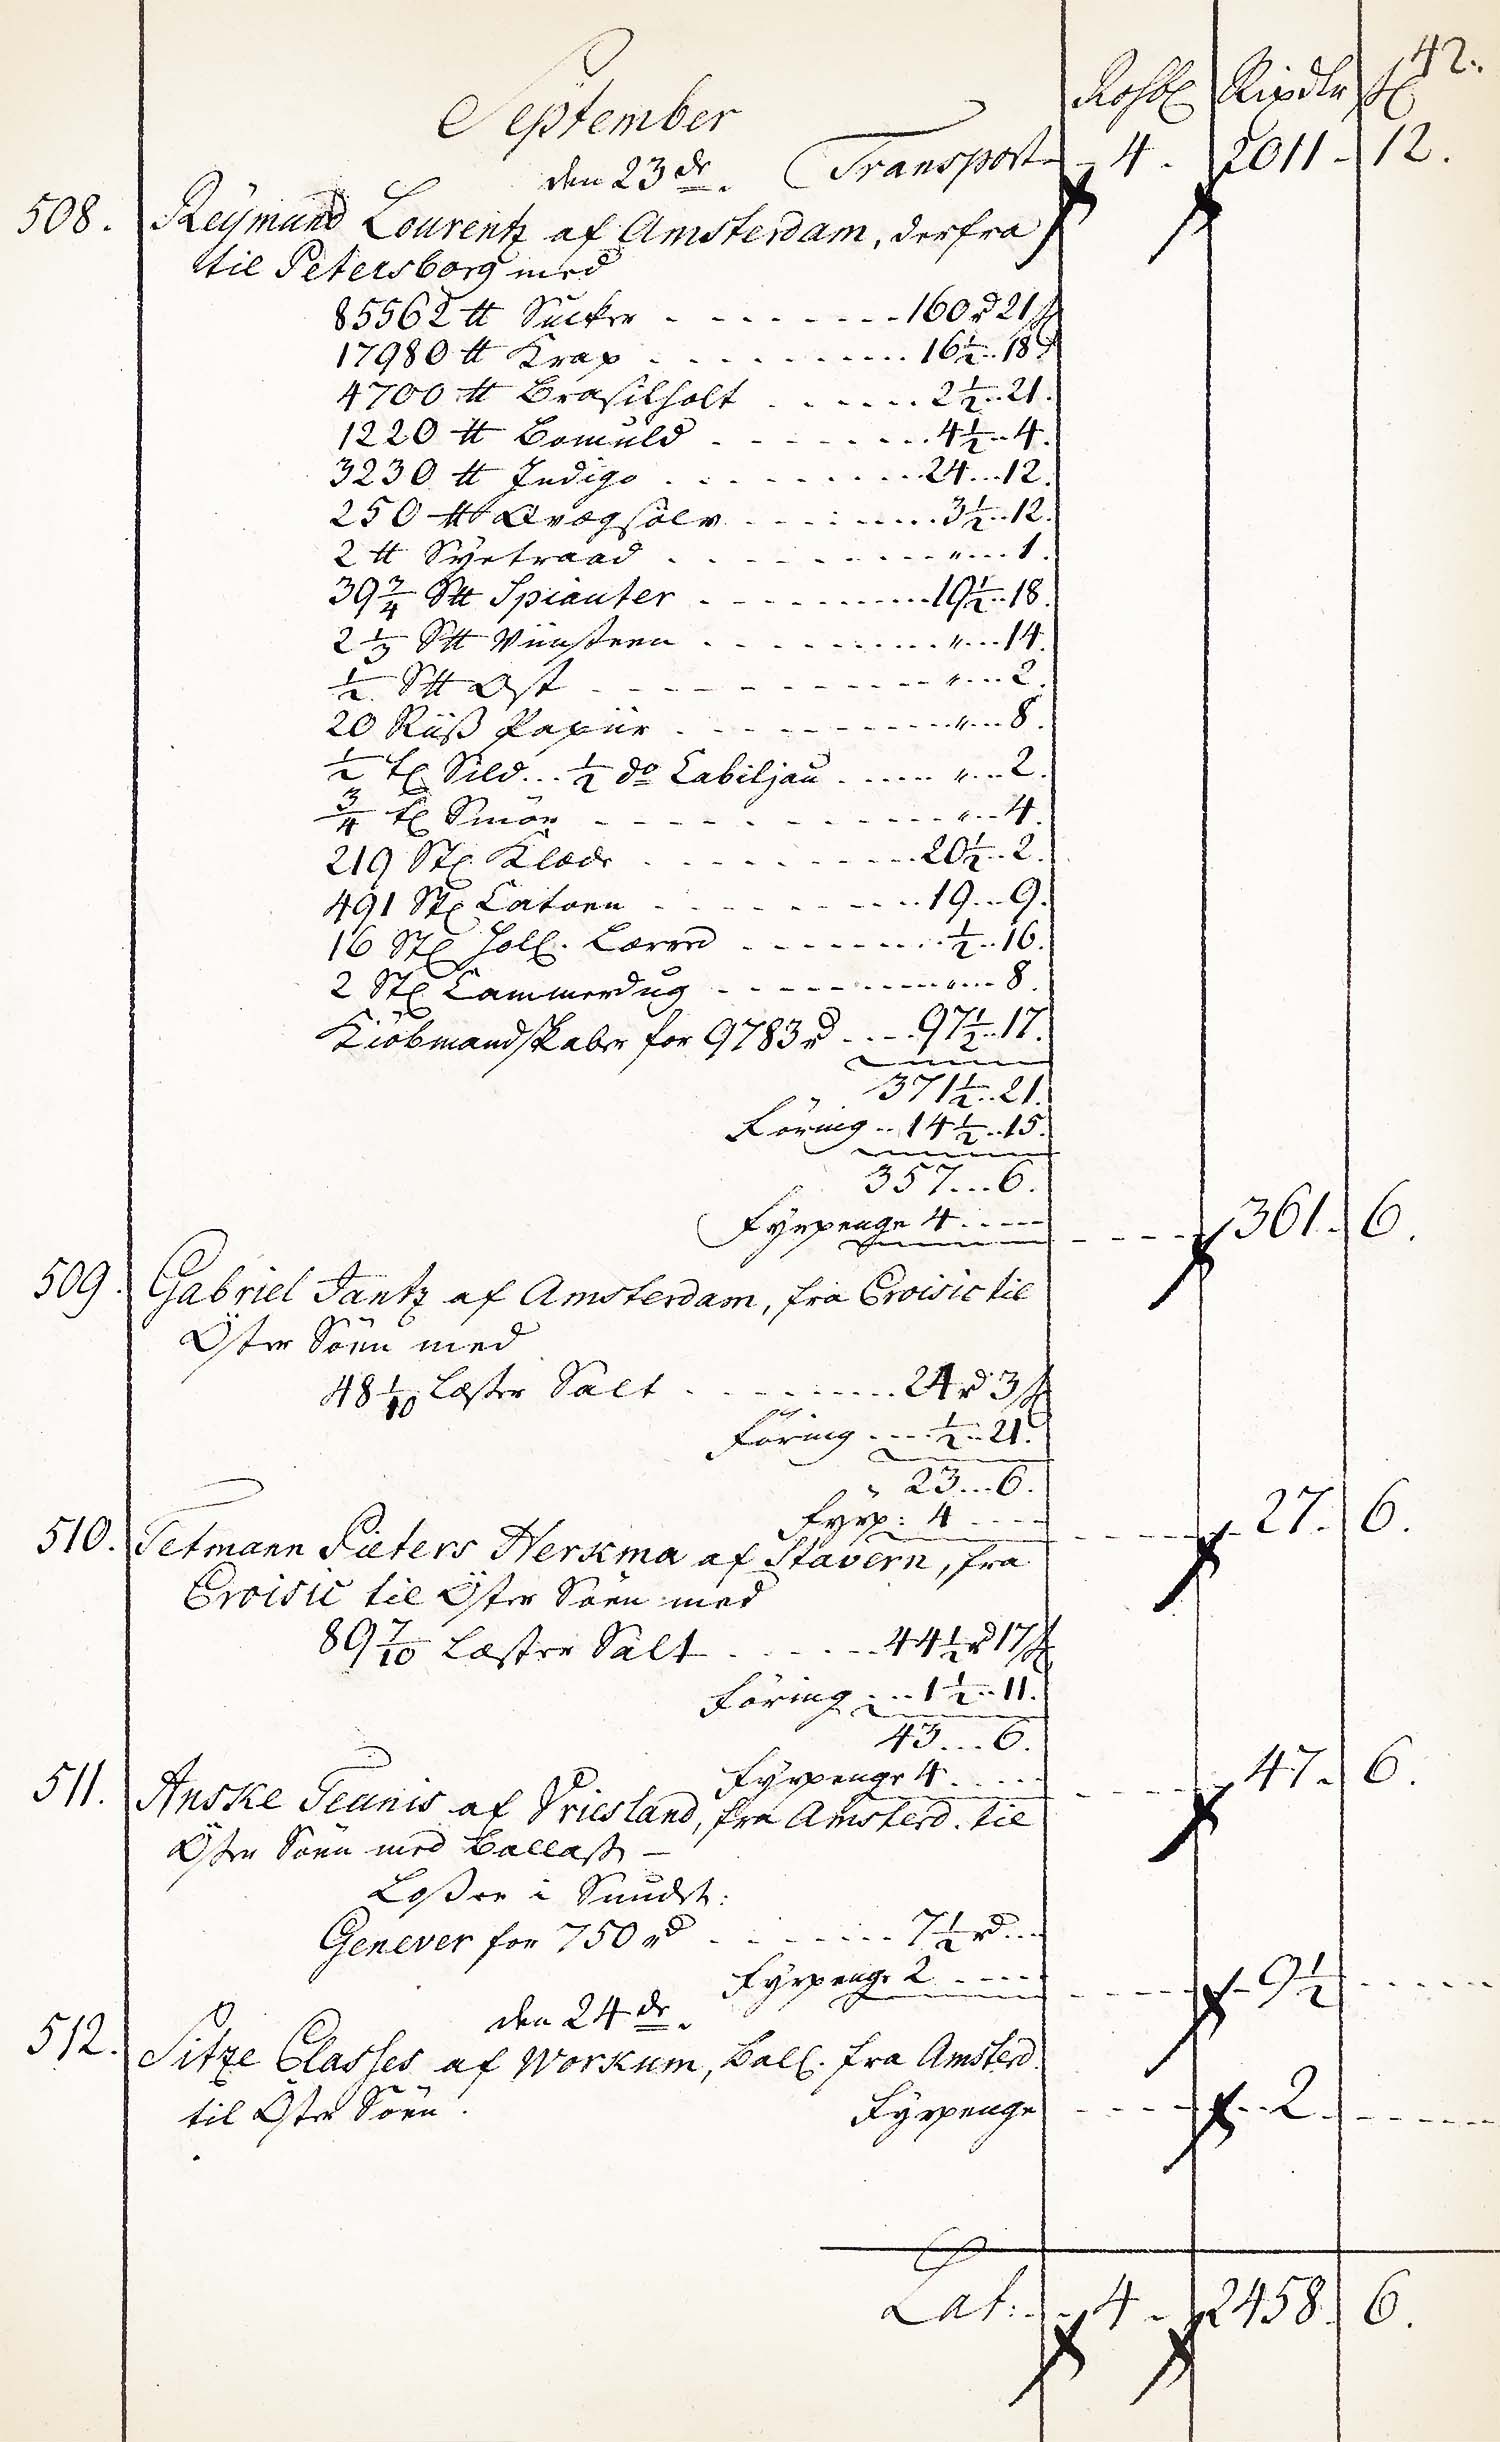 42.
September
Rosbℓ Rixdlr ß
den 23de. Transport - 4. 2011 - 12.
508. Reÿmund Lourentz af Amsterdam, derfra
til Petersborg med
85562 ℔ Sucker - - - - 160 rd 21 ß
17980 ℔ Krap - - - - 16½ .. 18
4700 ℔ Brasilholt - - - - 2½ .. 21.
1220 ℔ Bomuld - - - - 4½ .. 4.
3230 ℔ Indigo - - - - 24 ... 12.
250 ℔ Qvægsølv - - - - 3½ .. 12.
2 ℔ Sÿetraad - - - - " ... 1.
39¾ S℔ Spiauter - - - - 19½ .. 18.
2⅓ S℔ Viinsteen - - - - " ... 14.
½ S℔ Ost - - - - " ... 2.
20 Riiß Papiir - - - - " ... 8.
½ tℓ Sild ... ½ do Cabiljau - - - - " ... 2.
¾ tℓ Smör - - - - " ... 4.
219 Stℓ Klæde - - - - 20½ .. 2.
491 Stℓ Catoen - - - - 19 ... 9.
16 Stℓ Holl. Lærred - - - - ½ .. 16.
2 Stℓ Cammerdug - - - - " ... 8.
Kiöbmandskaber for 9783 rd - - - 97½ .. 17.
371½ .. 21.
Föring .. 14½ .. 15.
357 ... 6.
Fÿrpenge 4 - - - - 361 - 6.
509. Gabriel Jantz af Amsterdam, fra Croisic til
Öster Söen med
48 1/10 Læster Salt - - - - 24 rd 3 ß
Föring - - - ½ .. 21.
23 ... 6.
Fÿrp: 4 - - - - 27. 6.
510. Tetmann Pieters Herkma af Stavern, fra
Croisic til Öster Söen med
89 7/10 Læster Salt - - - - 44½ rd 17 ß
Föring - - - 1½ .. 11.
43 ... 6.
Fÿrpenge 4 - - - - 47 - 6.
511. Anske Teunis af Vriesland, fra Amsterd. til
Öster Söen med Ballast -
Loßer i Sundet:
Genever for 750 rd - - - - 7½ rd ...
Fÿrpenge 2 - - - - 9½ - - - -
den 24de.
512. Sitze Classes af Workum, Ball. fra Amsterd.
til Öster Söen. Fÿrpenge - - - - 2 - - - -
Lat: - - 4 - 2458. 6.